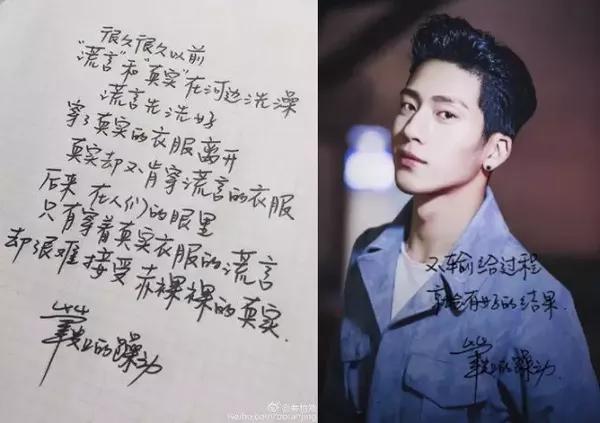 很久很久以前
"谎言"和"真实"在河边洗澡
谎言先洗好
穿了真实的衣服离开
真实却不肯穿谎言的衣服
后来 在人们的眼里
只有穿着真实衣服的谎言
却很难接受赤裸裸的真实.
上的躁动.
不输给过程
就会有好的结果.
上的躁动.
weibo.com/boranjing